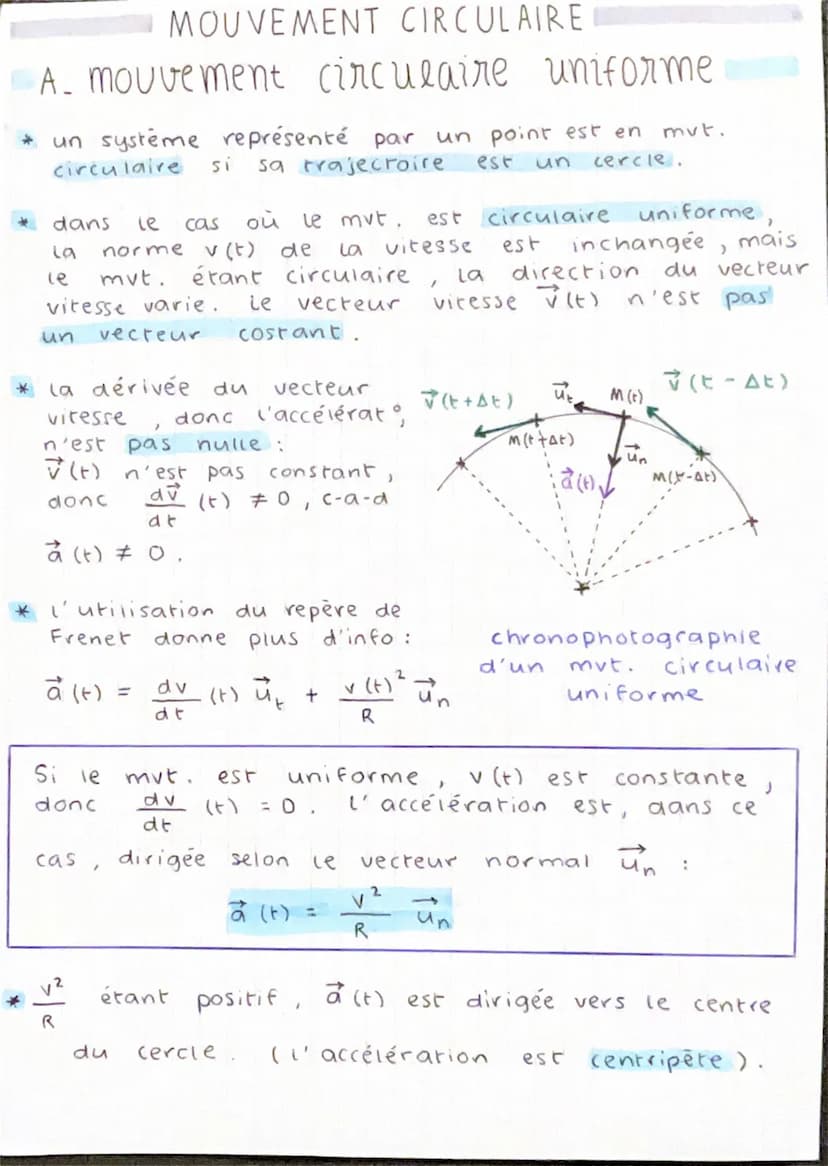 MOUVEMENT CIRCULAIRE
A- mouvement circulaire uniforme
* un système représenté par un point est en mvt.
circulaire si sa trajectoire est un cercle.
* dans le cas où le mvt. est circulaire uniforme,
la norme v(t) de la vitesse est inchangée, mais
le mvt. étant circulaire, la direction du vecteur
vitesse varie. Le vecteur vitesse v⃗(t) n'est pas
un vecteur costant.
* la dérivée du vecteur
vitesse, donc l'accélérat°,
n'est pas nulle :
v⃗(t) n'est pas constant,
donc dv⃗/dt (t) ≠ 0, c-a-d
a⃗(t) ≠ 0.
v⃗(t+Δt)
u⃗t
M(t)
v⃗(t - Δt)
M(t+Δt)
u⃗n
a⃗(t)
M(t-Δt)
chronophotographie
d'un mvt. circulaire
uniforme
* l'utilisation du repère de
Frenet donne plus d'info :
a⃗(t) = dv/dt (t) u⃗t + v(t)²/R u⃗n
Si le mvt. est uniforme, v(t) est constante,
donc dv/dt (t) = 0. L'accélération est, dans ce
cas, dirigée selon le vecteur normal u⃗n :
a⃗(t) = v²/R u⃗n
* v²/R étant positif, a⃗(t) est dirigée vers le centre
du cercle. (L'accélération est centripète).